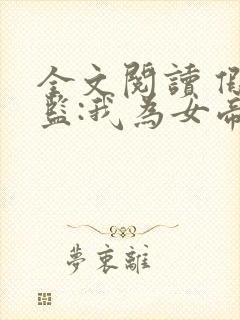 全文閱讀 假
監:我為女帝
夢裏離